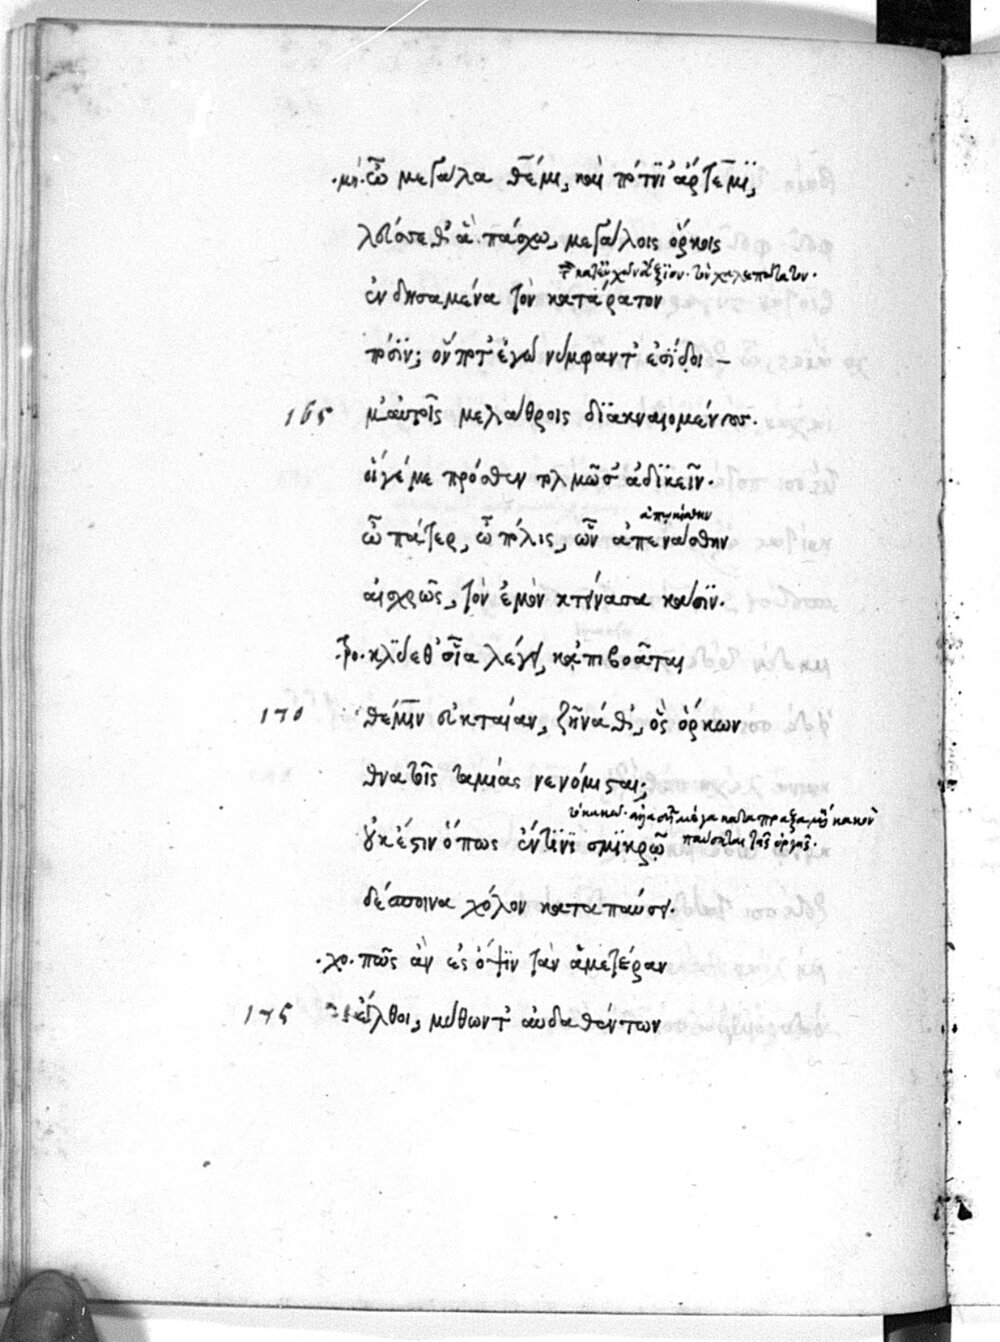 .μή. ὦ μεγάλα θέμι, καὶ πότνι' ἄρτεμι,
λεύσεθ' ἃ πάσχω, μεγάλοις ὅρκοις
ἐνδησαμένα τὸν κατάρατον
πόσιν; ὅν ποτ' ἐγὼ νύμφαν τ' ἐσίδοι –
165 μ' αὐτοῖς μελάθροις διακναιομένους.
οἵ γέ με πρόσθεν τολμῶσ' ἀδικεῖν.
ἀπῳκίσθην
ὦ πάτερ, ὦ πόλις, ὧν ἀπενάσθην
αἰσχρῶς, τὸν ἐμὸν κτείνασα κάσιν.
.τρο. κλύεθ' οἷα λέγει, κἀπιβοᾶται
170 θέμιν εὐκταίαν, ζῆνά θ', ὃς ὅρκων
θνατοῖς ταμίας νενόμισται;
οὐκ ἔστιν ὅπως ἔν τινι σμικρῷ
παύσεται τῆς ὀργῆς.
δέσποινα χόλον καταπαύσει.
.χο. πῶς ἂν ἐς ὄψιν τὰν ἁμετέραν
175 ἔλθοι, μύθων τ' αὐδαθέντων